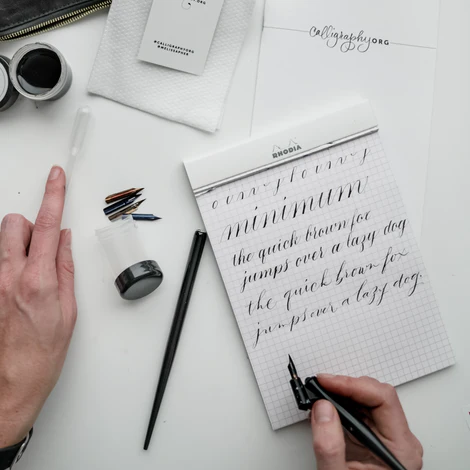 .ORG
#CALLIGRAPHYORG
calligraphy.ORG
RHODIA
minimum
the quick brown fox
jumps over a lazy dog
the quick brown fox
jumps over a lazy dog.